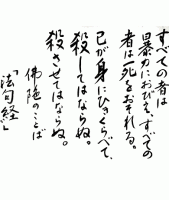 すべての者は
暴力におびえ、すべての
者は死をおそれる。
己が身にひきくらべて、
殺してはならぬ。
殺させてはならぬ。
佛陀のことば
「法句経」